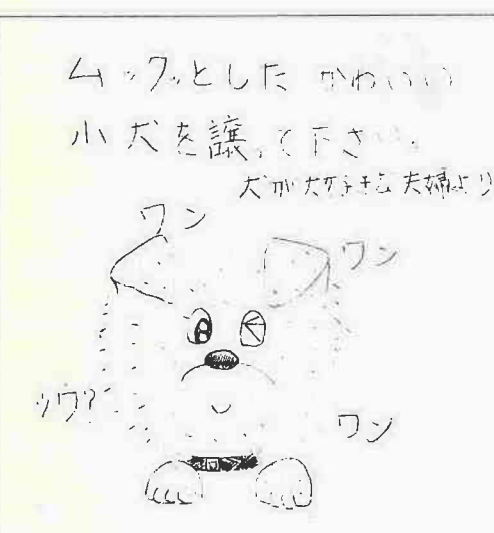 ムックッとした かわいい
小犬を譲って下さい.
犬が大好きな夫婦より
ワン
ワン
ッワ?
ワン